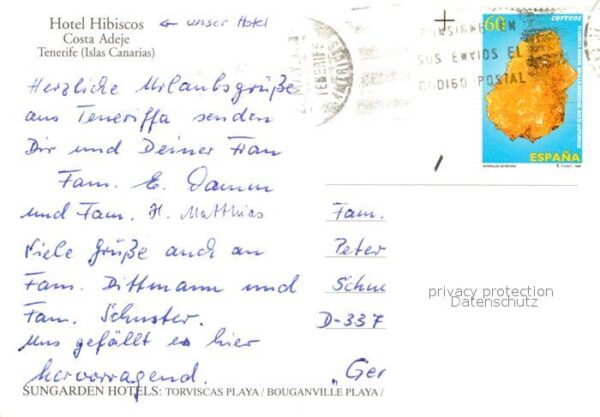 Hotel Hibiscos ← unser Hotel
Costa Adeje
Tenerife (Islas Canarias)
Herzliche Urlaubsgrüße
aus Teneriffa senden
Dir und Deiner Frau
Fam. E. Damm
und Fam. H. Matthias
Viele Grüße auch an
Fam. Dittmann und
Fam. Schuster.
Uns gefällt es hier
hervorragend.
SUNGARDEN HOTELS: TORVISCAS PLAYA / BOUGANVILLE PLAYA /
60 correos
ESPAÑA
CONSIGNE EN
SUS ENVIOS EL
CODIGO POSTAL
Fam.
Peter
Schu
D-337
"Ger
privacy protection
Datenschutz